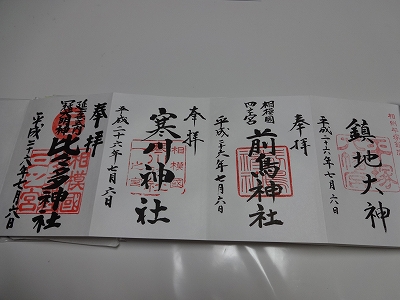 鎮地大神
平成二十六年七月六日
奉拝
相模國
四之宮
前鳥神社
平成二十六年七月六日
奉拝
寒川神社
相模國
一之宮
平成二十六年七月六日
奉拝
比々多神社
相模國
三之宮
延喜式内
平成二十六年七月六日